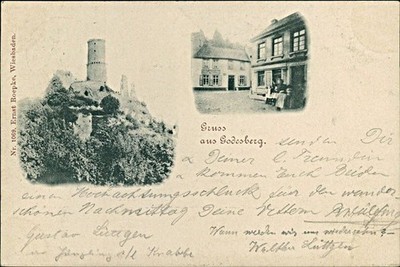 Nr. 1099. Ernst Roepke, Wiesbaden.
Gruss
aus Godesberg.
senden Dir
Deiner l. Freundin
kommen Euch Beiden
einen Hochachtungsschluck für den wunder-
schönen Nachmittag Deine Vettern
Gustav Lüttgen
Wann werden wir uns wiedersehen?
Walter Lüttgen